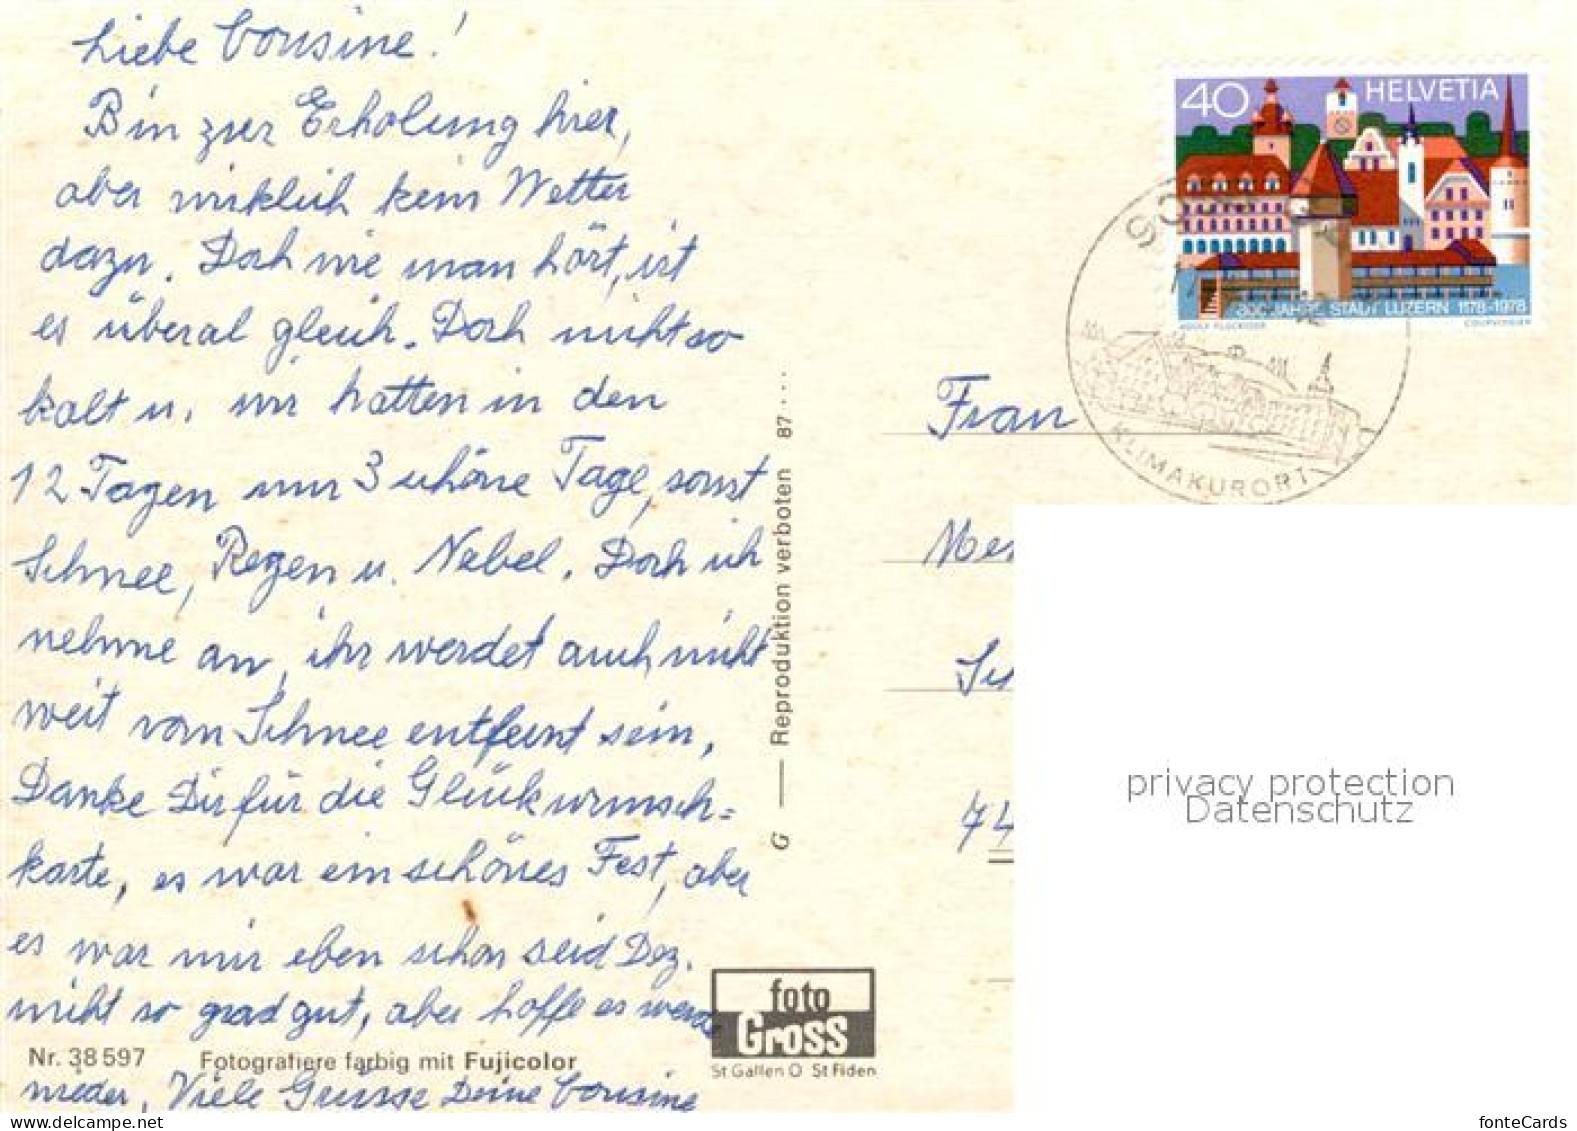 Liebe Cousine!
Bin zur Erholung hier,
aber wirklich kein Wetter
dazu. Doch wie man hört, ist
es überal gleich. Doch nicht so
kalt u. wir hatten in den
12 Tagen nur 3 schöne Tage, sonst
Schnee, Regen u. Nebel. Doch ich
nehme an, ihr werdet auch nicht
weit vom Schnee entfernt sein,
Danke Dir für die Glückwunsch=
karte, es war ein schönes Fest, aber
es war mir eben schon seid Dez.
nicht so grad gut, aber hoffe es werde
wieder. Viele Grüsse Deine Cousine
Nr. 38 597 Fotografiere farbig mit Fujicolor
G — Reproduktion verboten 87...
foto
Gross
St Gallen O St Fiden
40 HELVETIA
800 JAHRE STADT LUZERN 1178-1978
ADOLF FLÜCKIGER COURVOISIER
KLIMAKURORT
Frau
74
privacy protection
Datenschutz
fonteCards